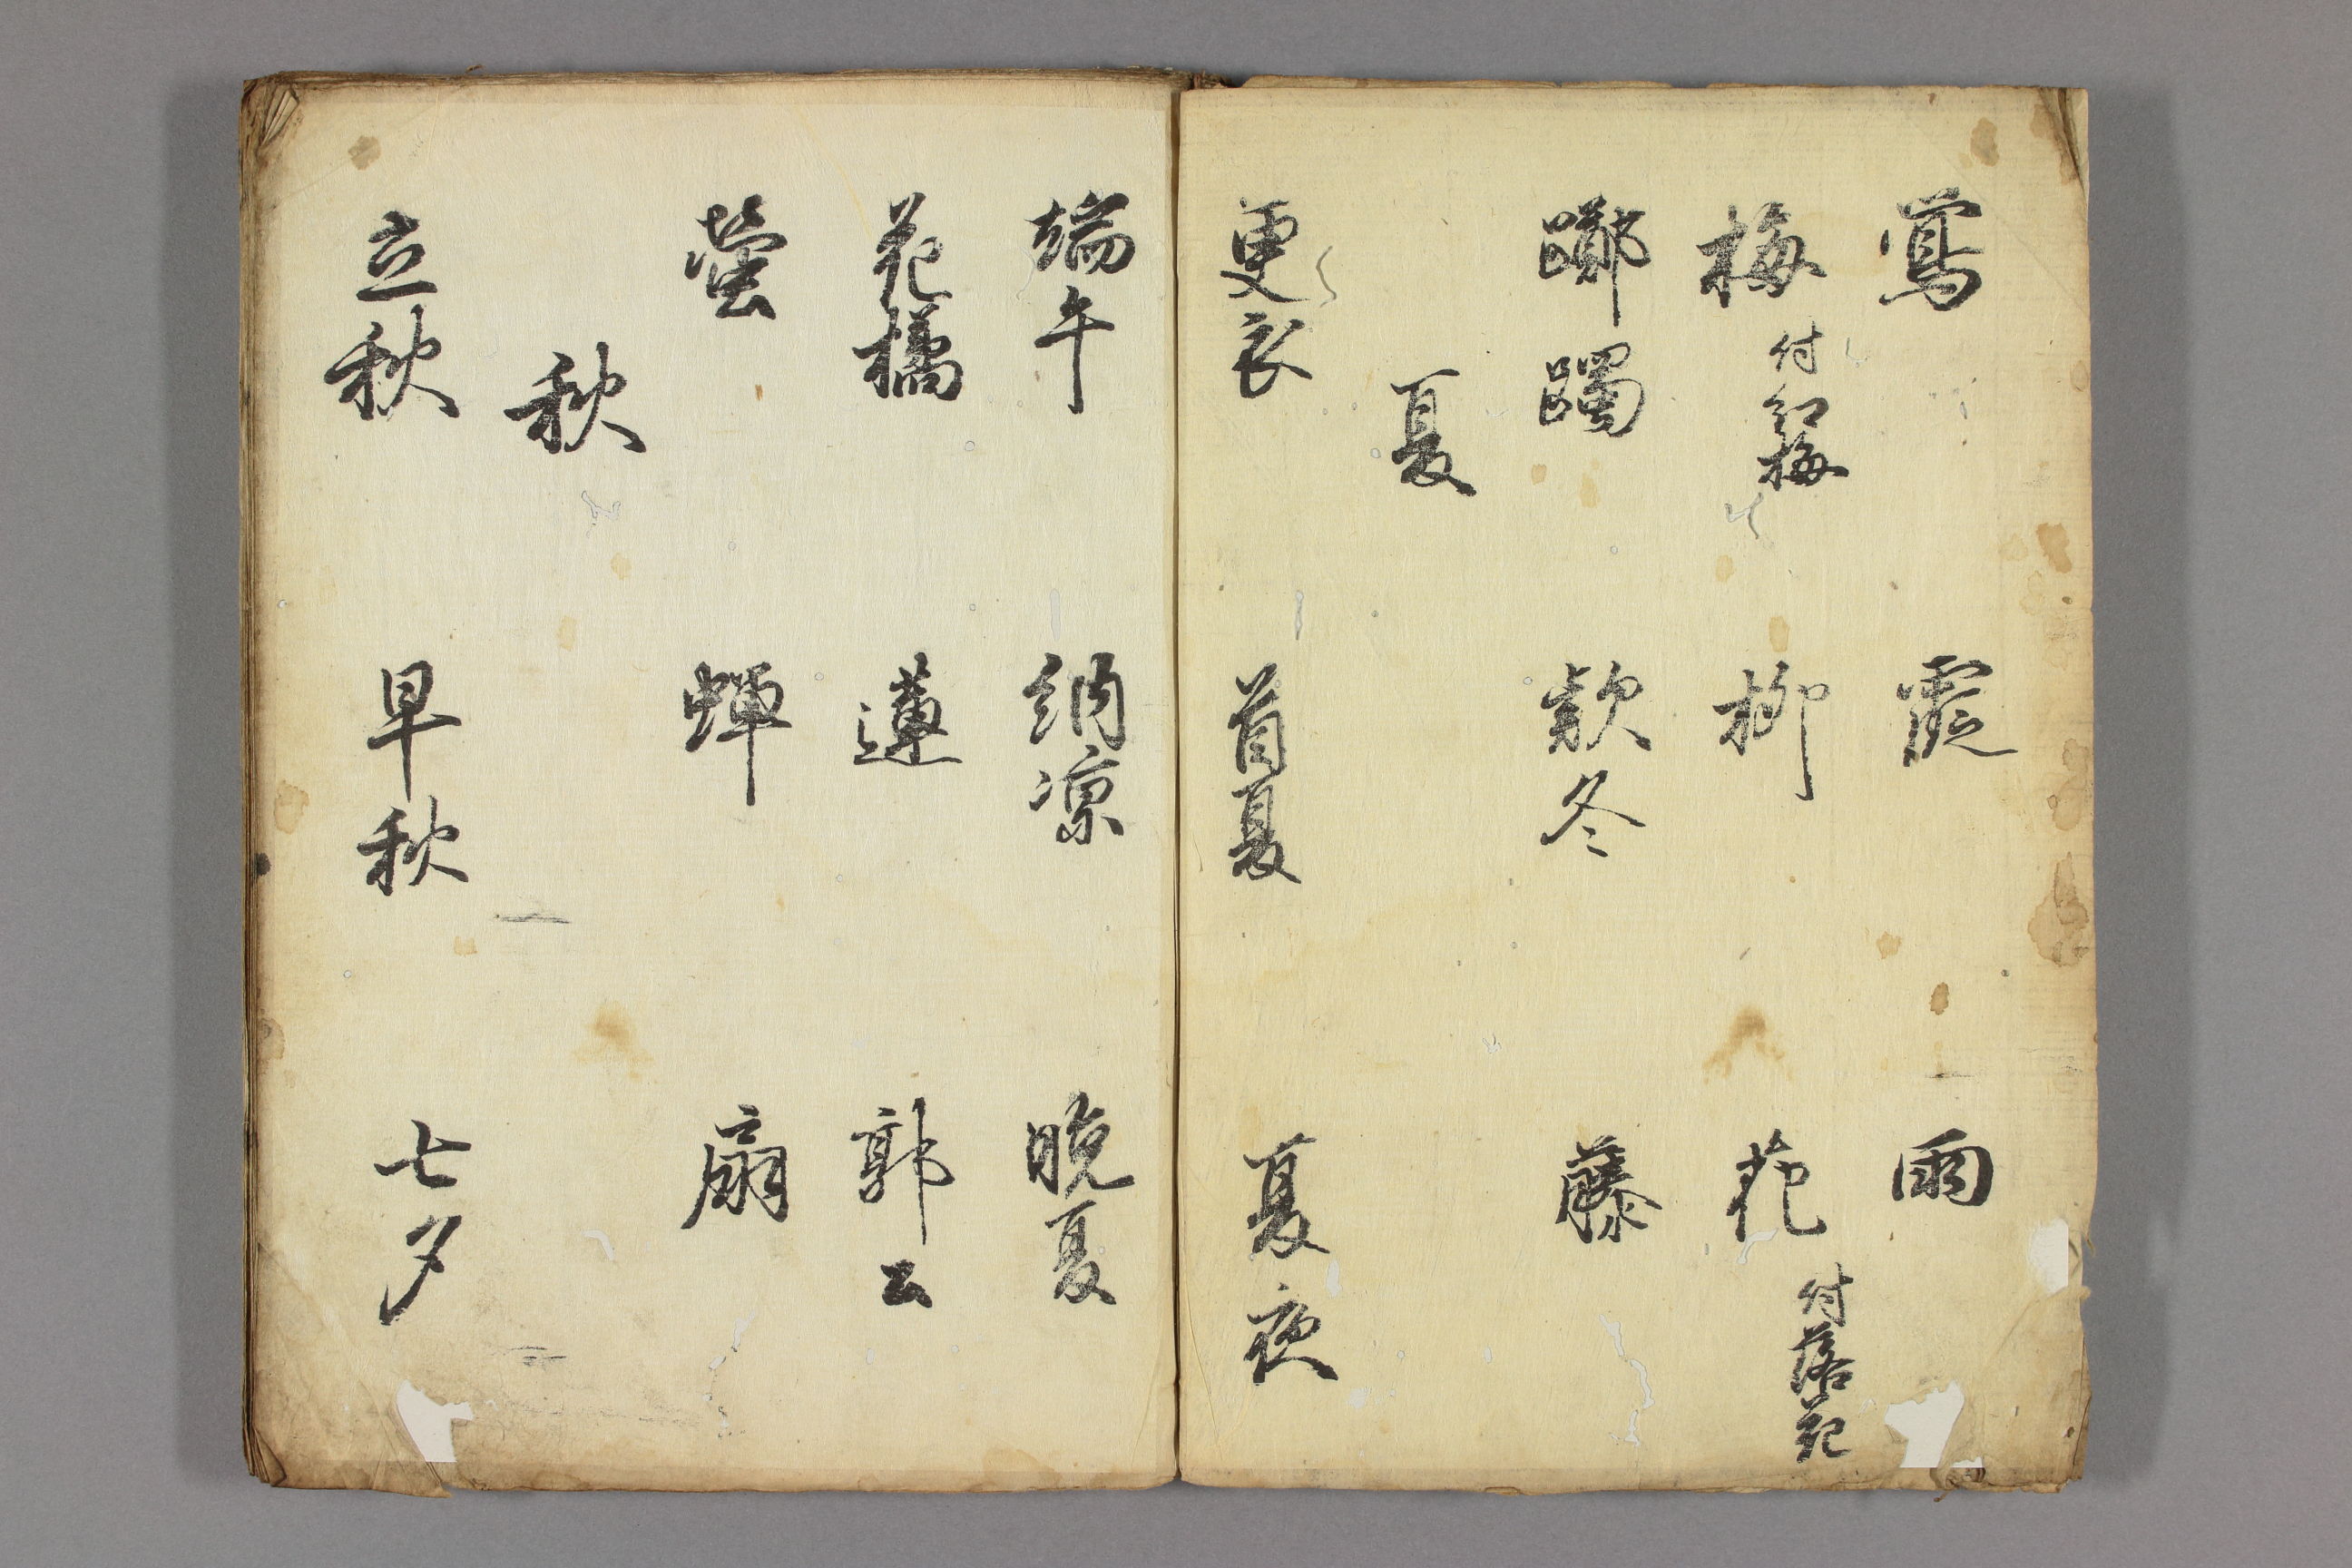 鶯 霞 雨
梅 付紅梅 柳 花 付落花
躑躅 款冬 藤
夏
更衣 首夏 夏夜
端午 納凉 晩夏
花橘 蓮 郭公
螢 蟬 扇
秋
立秋 早秋 七夕